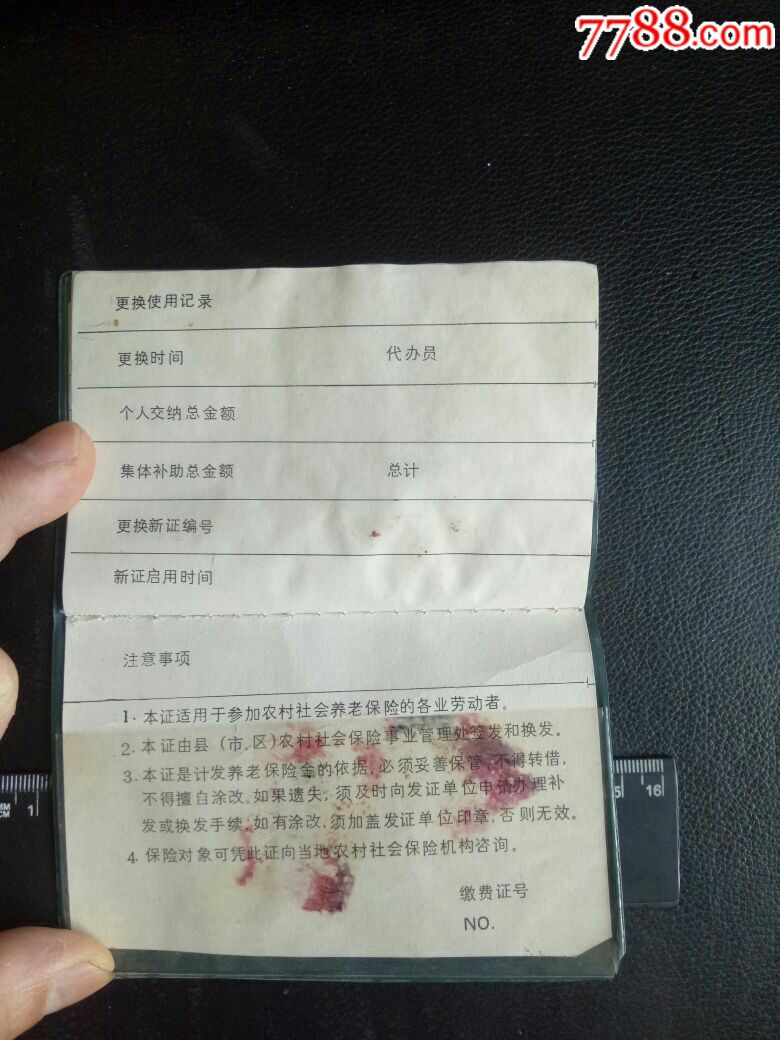 7788.com
更换使用记录
更换时间 代办员
个人交纳总金额
集体补助总金额 总计
更换新证编号
新证启用时间
注意事项
1.本证适用于参加农村社会养老保险的各业劳动者。
2.本证由县（市、区）农村社会保险事业管理处签发和换发。
3.本证是计发养老保险金的依据,必须妥善保管,不得转借,
不得擅自涂改。如果遗失,须及时向发证单位申请办理补
发或换发手续,如有涂改,须加盖发证单位印章,否则无效。
4.保险对象可凭此证向当地农村社会保险机构咨询。
缴费证号
NO.
MM
CM 1
5 16